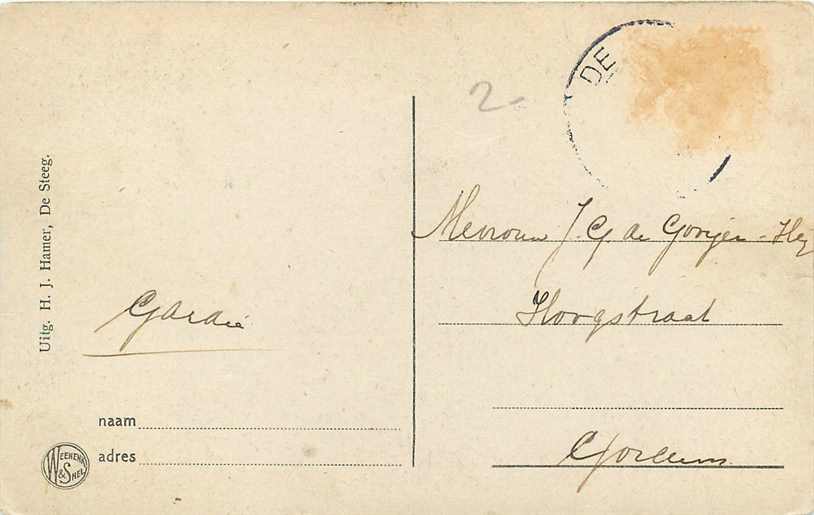 DE
2-
Mevrouw J. G. de Gorijer-Hey
Hoogstraat
Gorcum
Gardé
Uitg. H. J. Hamer, De Steeg.
naam
adres
WEENENK & SNEL